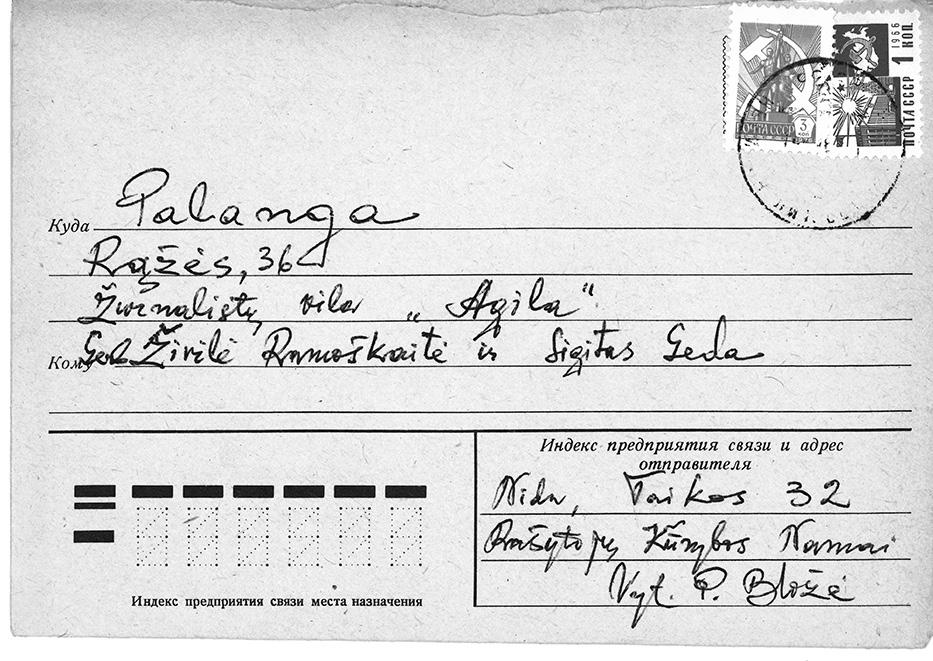 ПОЧТА СССР 3 КОП
1966 1 КОП. ПОЧТА СССР
Куда Palanga
Rąžės, 36
Žurnalistų vila „Agila“
Кому Živilė Ramoškaitė ir Sigitas Geda
Индекс предприятия связи и адрес
отправителя
Nida, Taikos 32
Rašytojų Kūrybos Namai
Vyt. P. Bložė
Индекс предприятия связи места назначения